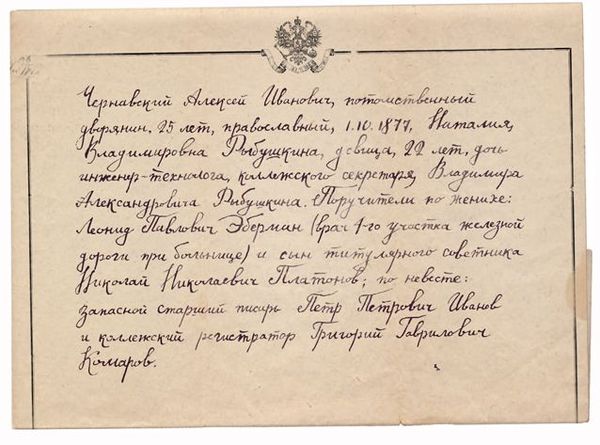 Чернавский Алексей Иванович, потомственный
дворянин. 25 лет, православный, 1.10.1877, Наталия,
Владимировна Рыбушкина, девица, 22 лет, дочь
инженер-технолога, коллежского секретаря, Владимира
Александровича Рыбушкина. Поручители по женихе:
Леонид Павлович Эберман (врач 1-го участка железной
дороги при больнице) и сын титулярного советника
Николай Николаевич Платонов; по невесте:
запасной старший писарь Пётр Петрович Иванов
и коллежский регистратор Григорий Гаврилович
Комаров.